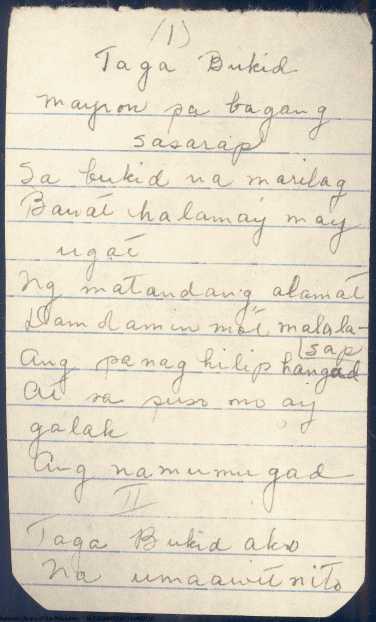 (1)
Taga Bukid
mayron pa bagang
sasarap
Sa bukid na marilag
Bawat halamay may
ugat
Ng matandang alamat
Damdamin mo't malala-
sap
Ang panaghilip hangad
At sa puso mo ay
galak
Ang namumugad
II
Taga Bukid ako
Na umaawit nito